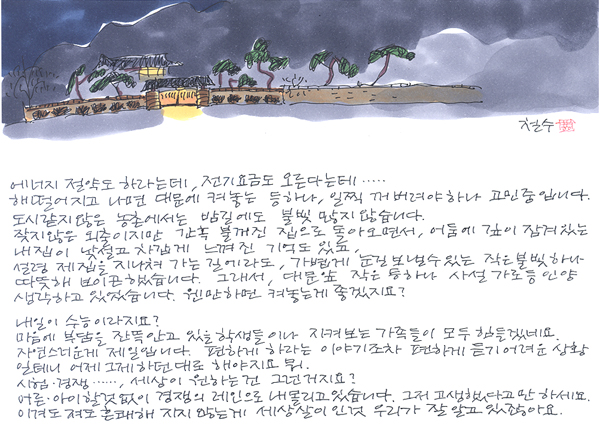 철수
에너지 절약도 하라는데, 전기요금도 오른다는데 ‥‥‥
해떨어지고 나면 대문에 켜놓는 등하나, 일찍 꺼버려야하나 고민중입니다.
도시같지않은 농촌에서는 밤길에도 불빛 많지 않습니다.
잦지않은 외출이지만 간혹 불꺼진 집으로 돌아오면서, 어둠에 깊이 잠겨있는
내집이 낯설고 차갑게 느껴진 기억도 있고,
설령 제집을 지나쳐 가는 길에라도, 가볍게 눈길 보낼수 있는 작은불빛하나
따뜻해 보이곤 했습니다. 그래서, 대문앞 작은 등하나 사설 가로등인양
생각하고 있었습니다. 웬만하면 켜놓는게 좋겠지요?
내일이 수능이라지요?
마음에 부담을 잔뜩안고 있을 학생들이나 지켜보는 가족들이 모두 힘들겠네요.
자연스러운게 제일입니다. 편하게 하라는 이야기조차 편하게 듣기 어려운 상황
일테니 어제 그제 하던대로 해야지요 뭐.
시험·경쟁 ‥‥‥, 세상이 원하는건 그런거지요?
어른·아이할것없이 경쟁의 레인으로 내몰리고 있습니다. 그저 고생했다고만 하세요.
이겨도 져도 흔쾌해 지지 않는게 세상살이인것 우리가 잘 알고 있잖아요.